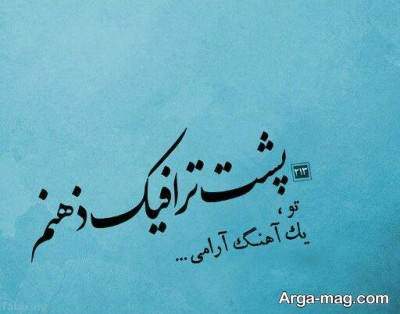 پشت ترافیک ذهنم
۲۱۳
تو ،
یك آهنگ آرامی ...
Arga-mag.com